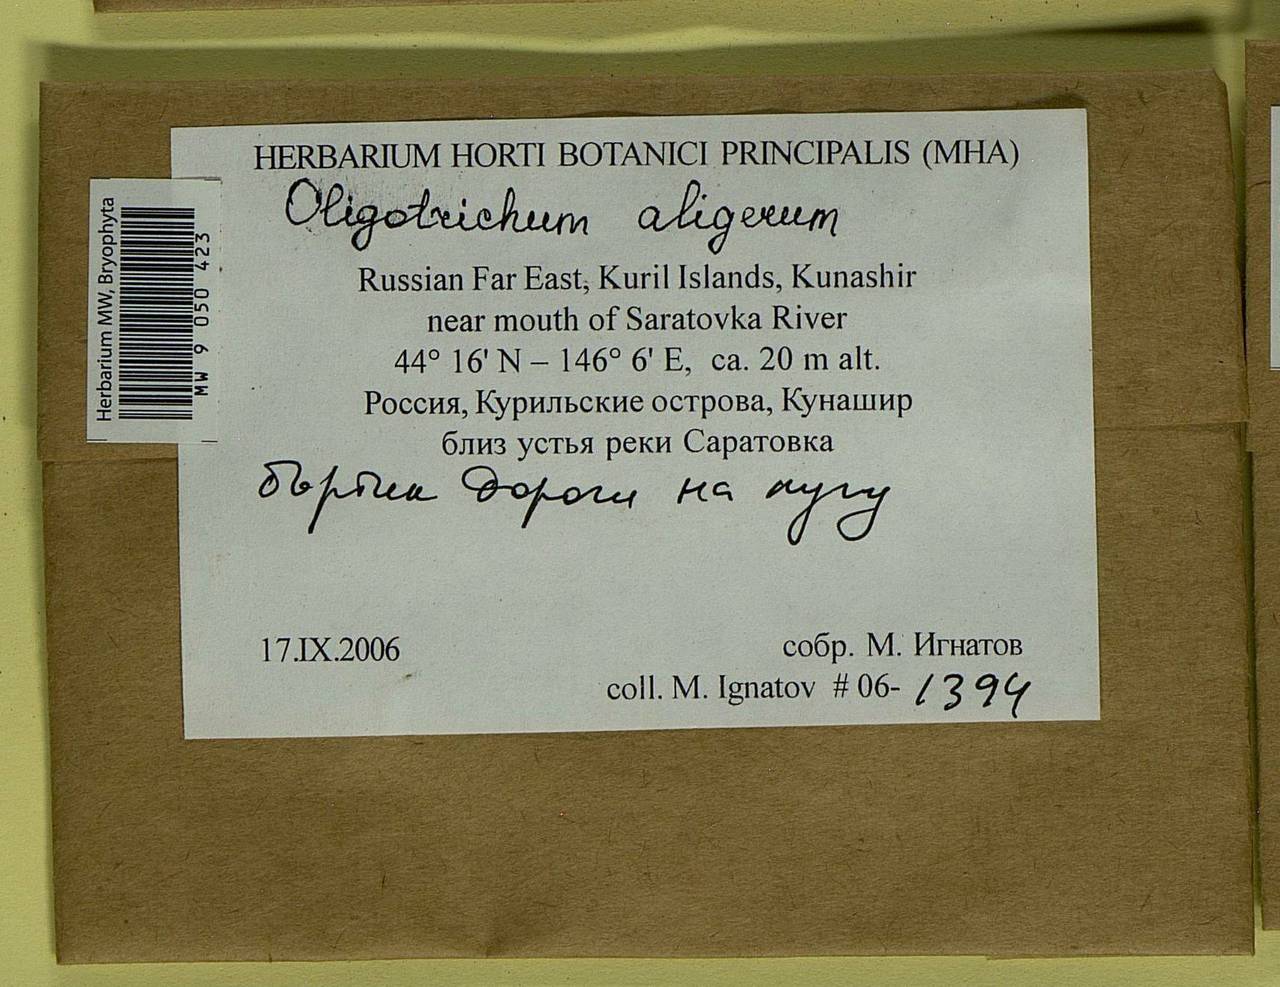 HERBARIUM HORTI BOTANICI PRINCIPALIS (MHA)
Oligotrichum aligerum
Russian Far East, Kuril Islands, Kunashir
near mouth of Saratovka River
44° 16' N – 146° 6' E, ca. 20 m alt.
Россия, Курильские острова, Кунашир
близ устья реки Саратовка
дороги на лугу
17.IX.2006
собр. М. Игнатов
coll. M. Ignatov # 06-1394
Herbarium MW, Bryophyta
MW 9 050 423